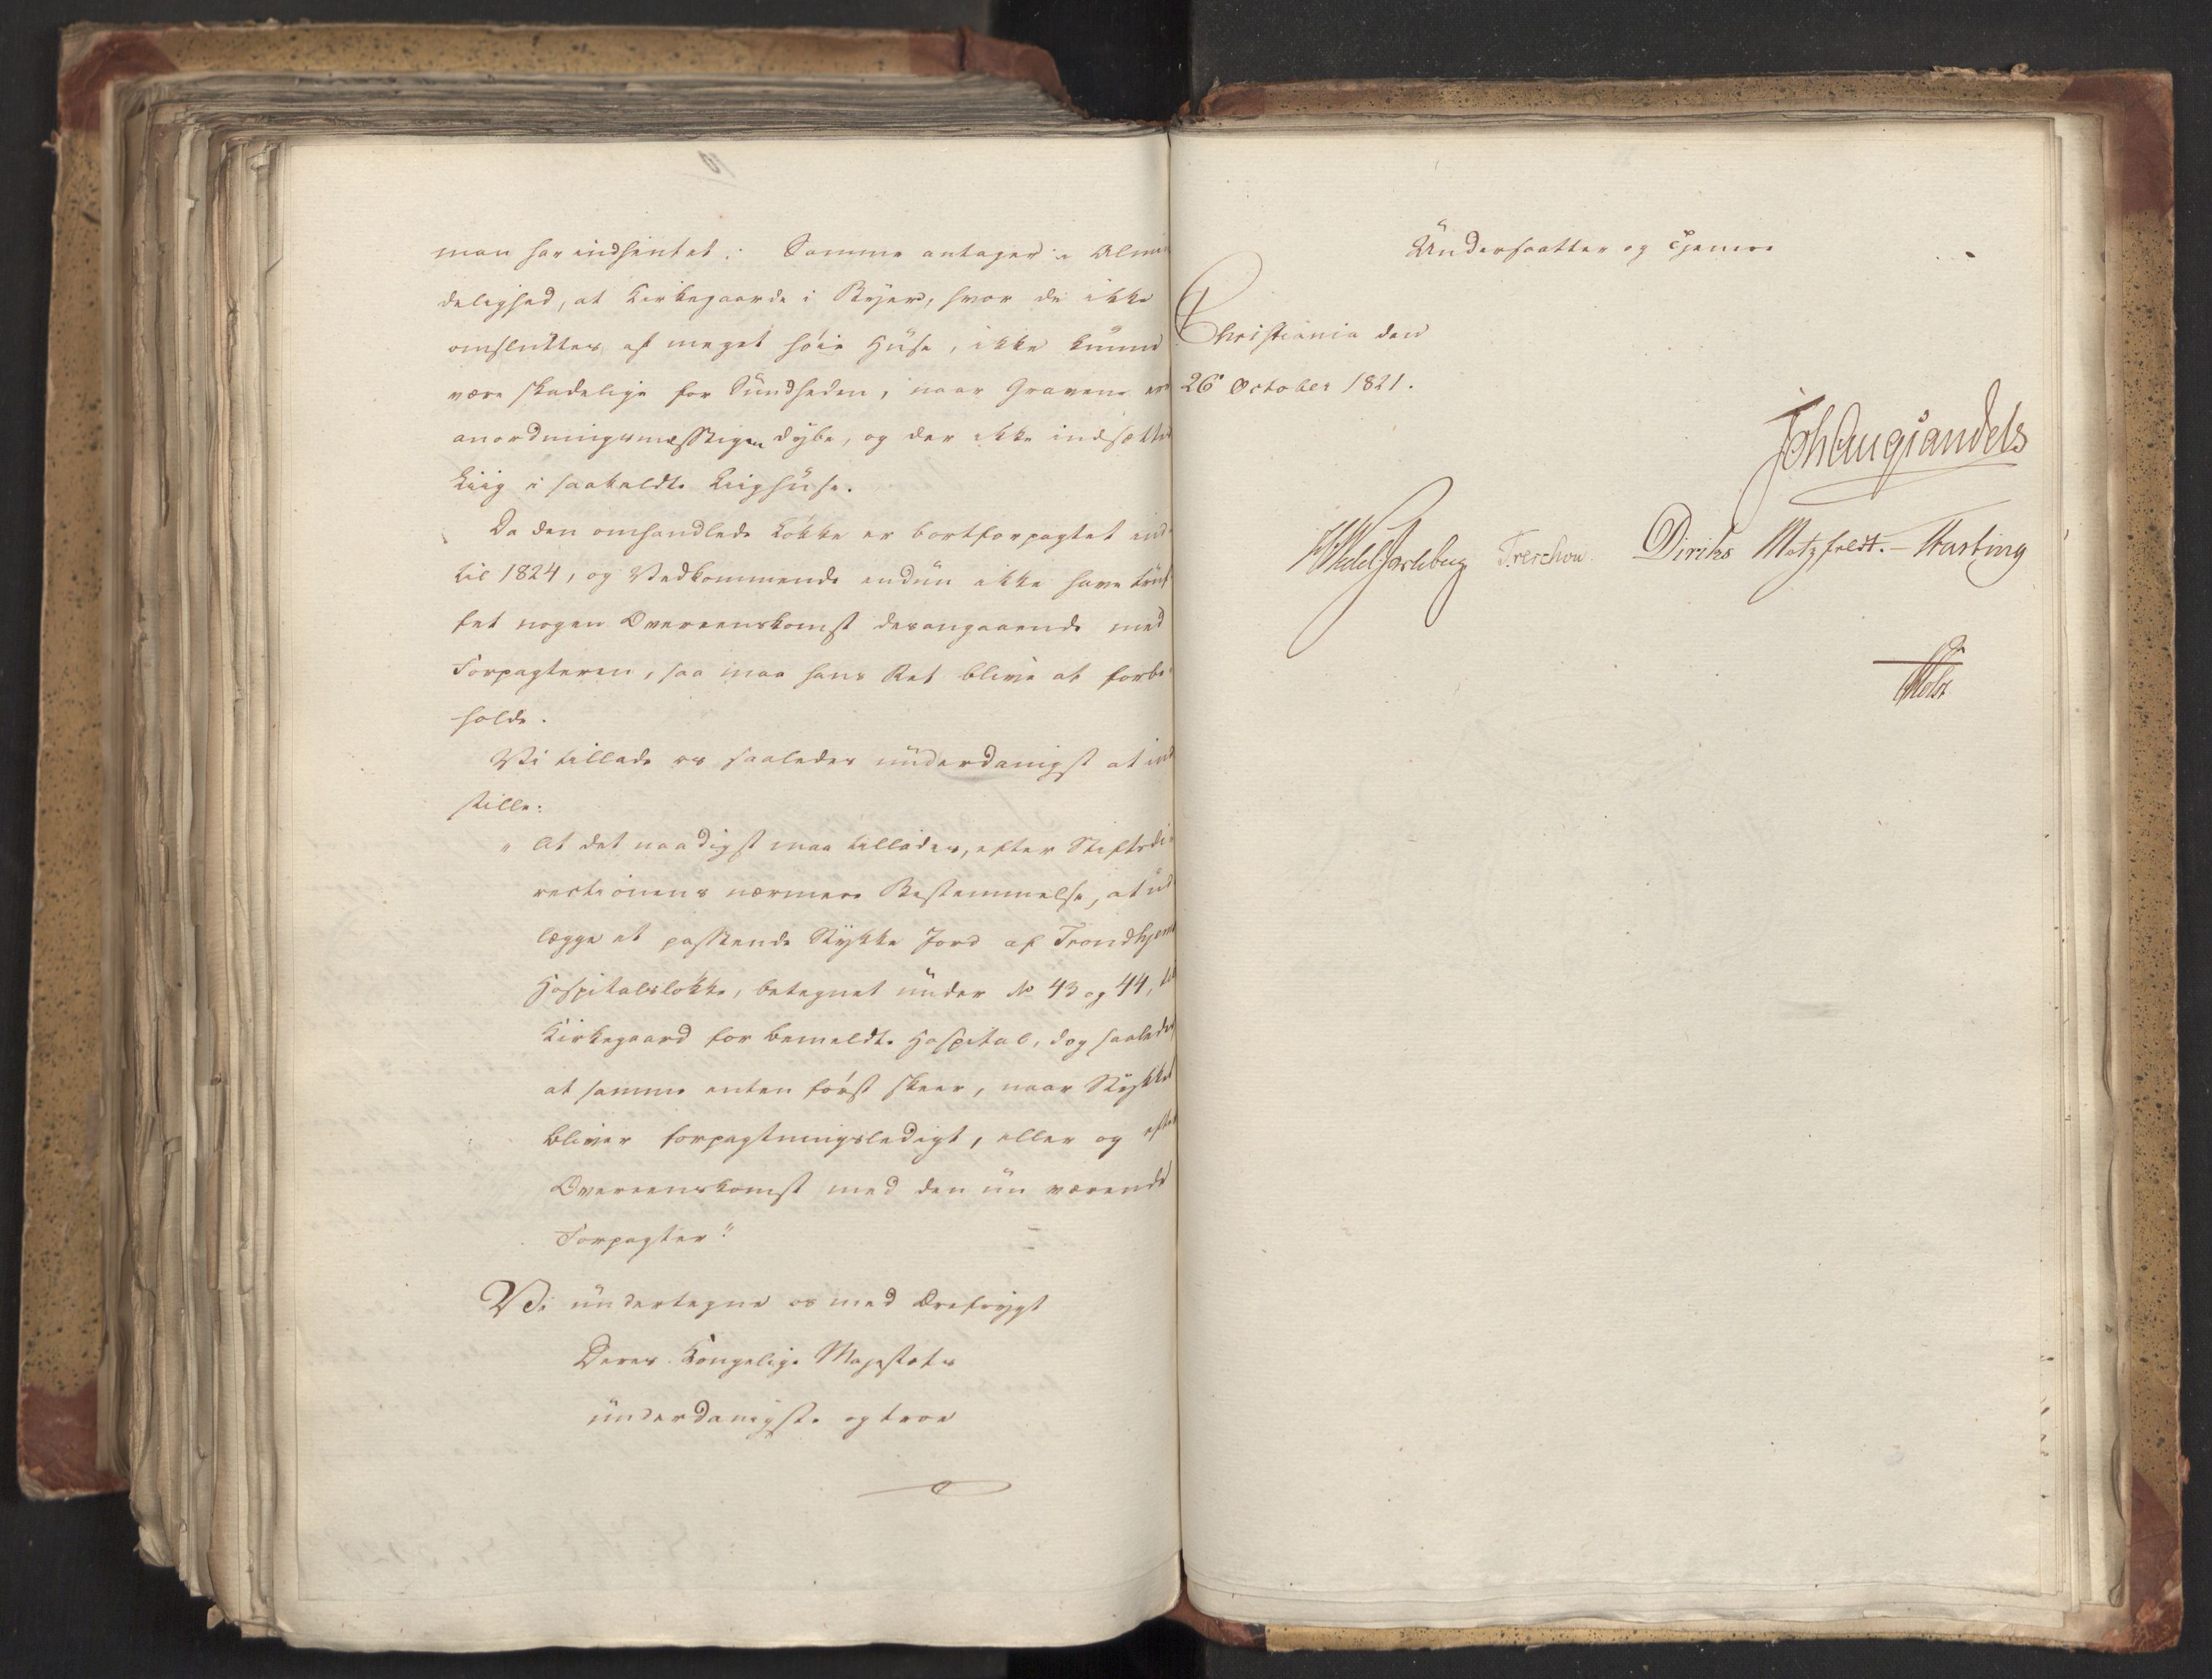 man har indhentet: Samme antager i Almin
delighed, at Kirkegaarde i Byer, hvor de ikke
omsluttes af meget høie Huse, ikke kunne
være skadelige for Sundheden, naar Gravene ere
anordningsmæssigen dybe, og der ikke indsættes
Liig i saakaldte Liighuse.
Da den omhandlede Løkke er bortforpagtet ind-
til 1824, og Vedkommende endnu ikke have truf-
fet nogen Overeenskomst desangaaende med
Forpagteren, saa maa hans Ret blive at forbe-
holde.
Vi tillade os saaledes underdanigst at ind
stille:
"At det naadigst maa tillades, efter Stiftsdi-
rectionens nærmere Bestemmelse, at ud
lægge et passende Stykke Jord af Trondhjems
Hospitalsløkke, betegnet under No 43 og 44, til
Kirkegaard for bemeldte Hospital, dog saaledes
at samme enten først skeer, naar Stykket
bliver forpagtningsledigt, eller og efter
Overeenskomst med den nu værende
Forpagter"
Vi undertegne os med Ærefrygt
Deres Kongelige Majestæts
underdanigste og troe
Undersaatter og Tjenere
Christiania den
26 October 1821.
Joh Aug Sandels
HWedelJarlsberg Treschow Diriks Motzfeldt. Hasting